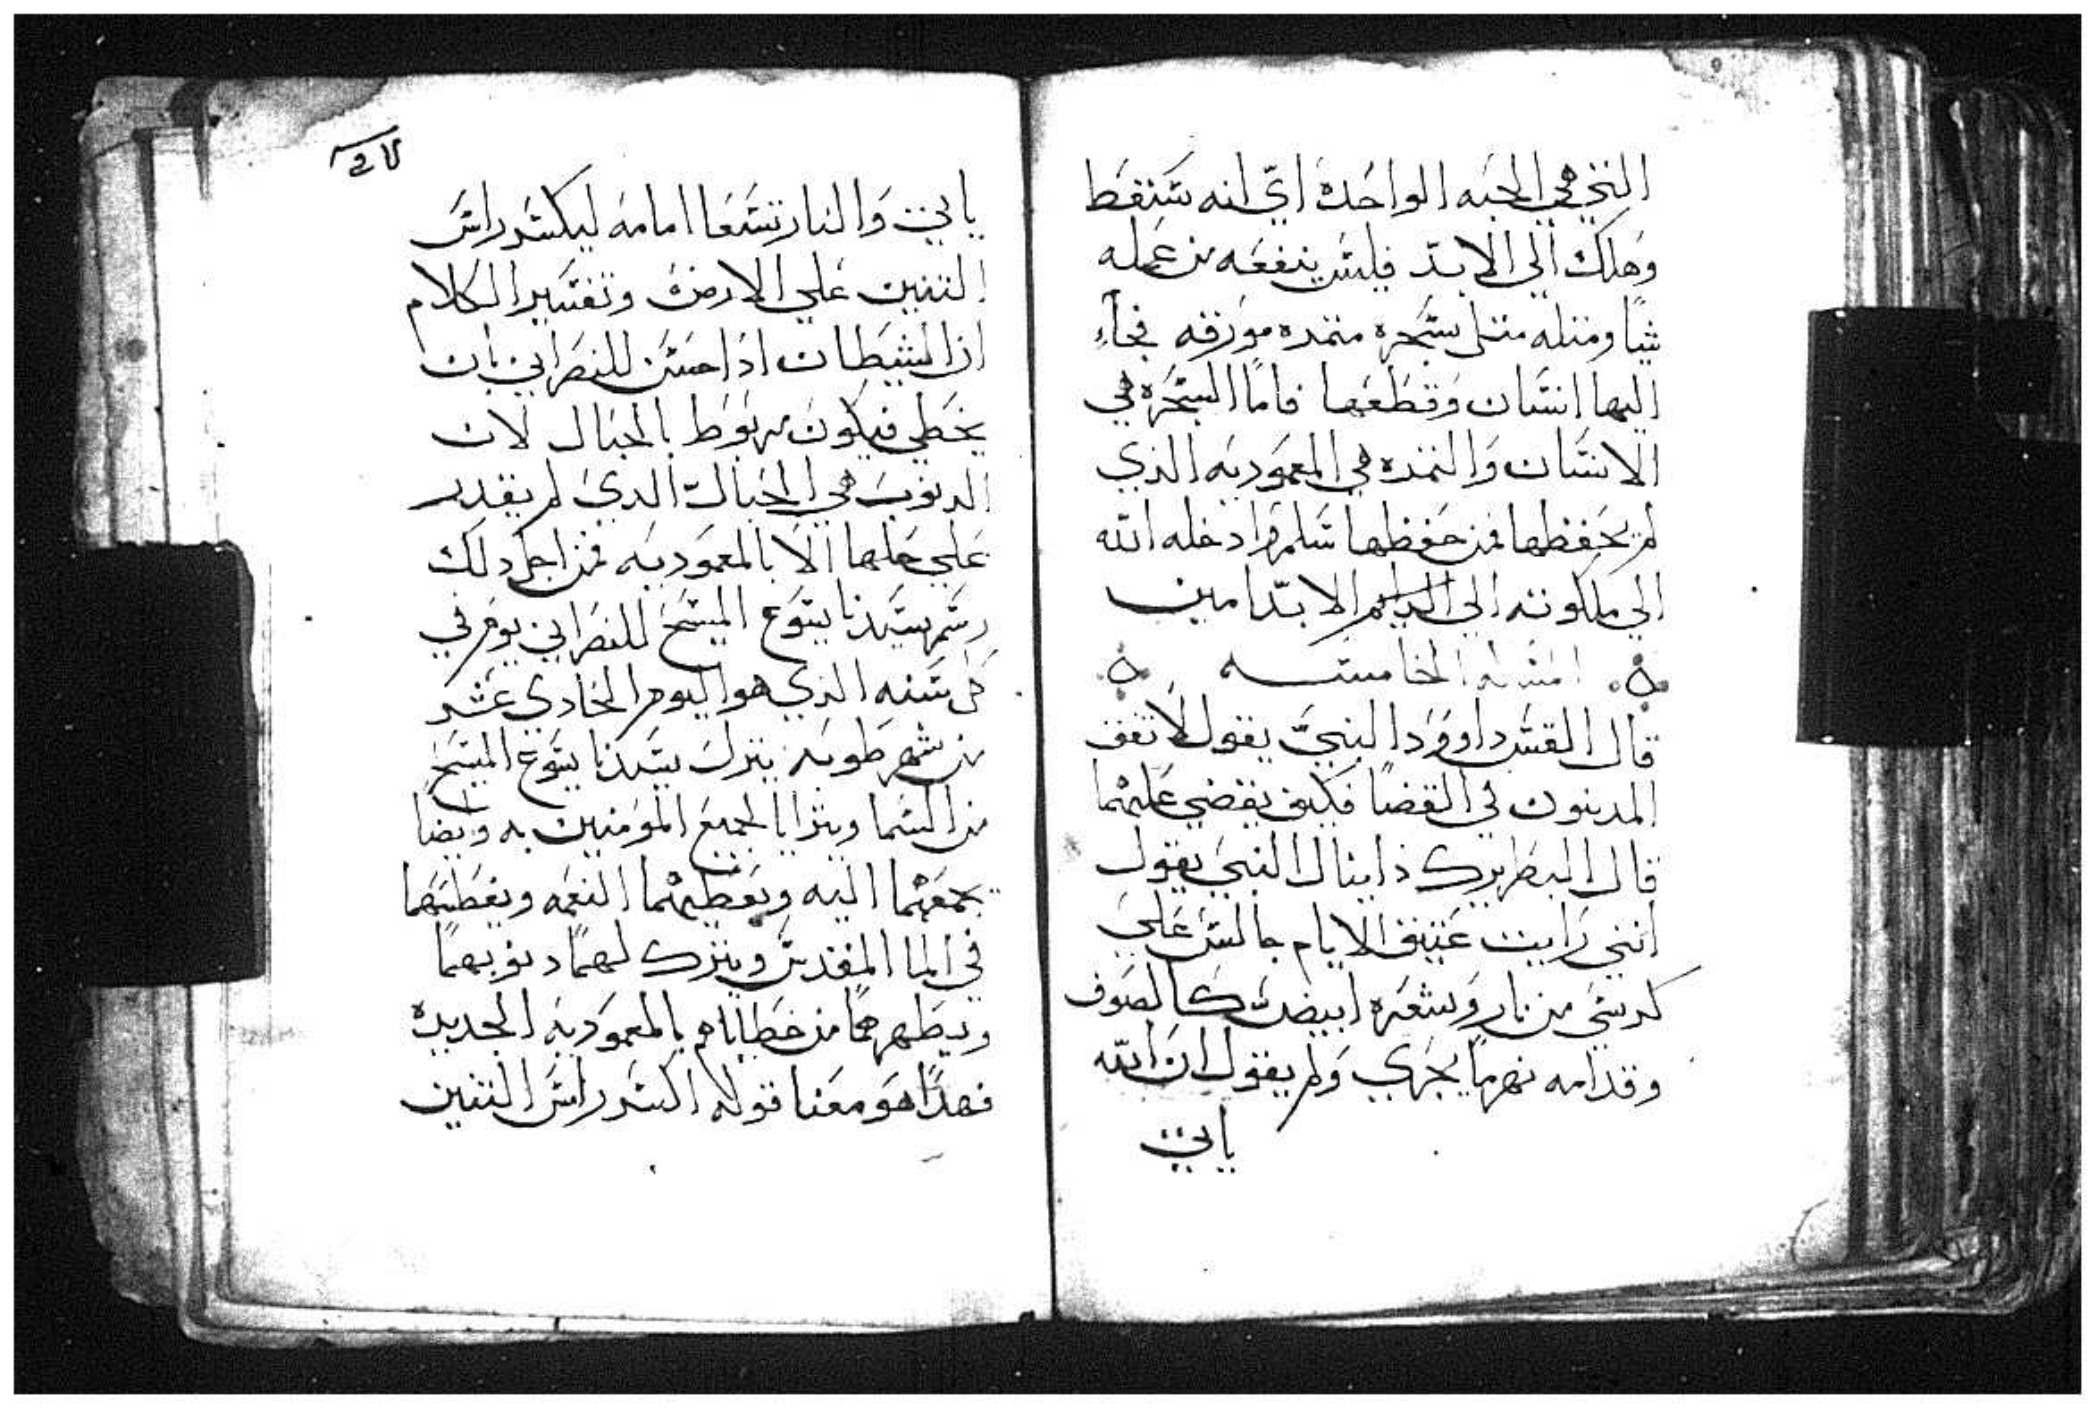 التي هي الحبه الواحدة اي انه سقط
وهلك الي الابد فليس ينفعه من عمله
شيا ومثله مثل شجره مثمره مورقه فجاء
اليها انسان وقطعها فاما الشجره هي
الانسان والثمره هي المعموديه الذي
لم يحفظها فمن حفظها سلم وادخله الله
الي ملكوته الي الدايم الابد امين
المسله الخامسه
قال القس داوود النبي يقول لا تقف
المدينون في القضا فكيف يقضي عليهما
قال البطريرك دانيال النبي يقول
انني رايت عتيق الايام جالس علي
كرسي من نار وشعره ابيض كالصوف
وقدامه نهرما يجري ولم يقول ان الله
ياتي
ياتي والنار تسعا امامه ليكسر راس
التنين علي الارض وتفسير الكلام
ان الشيطان اذا حسن للنصراني بان
يخطي فيكون مربوط بالحبال لان
الدنوب هي الحبال الدي لم يقدر
علي حلها الا بالمعموديه فمن اجل دلك
رسم سيدنا يسوع المسيح للنصراني يوم في
كل سنه الذي هو اليوم الحادي عشر
من شهر طوبه ينزل سيدنا يسوع المسيح
من السما ويترايا لجميع المومنين به وايضا
يجمعهما اليه ويعطيهما النعمه ويغطسهما
في الما المقدس ويترك لهما دنوبهما
ويطهرهما من خطاياهم بالمعموديه الجديده
فهدا هو معنا قوله اكسر راس التنين